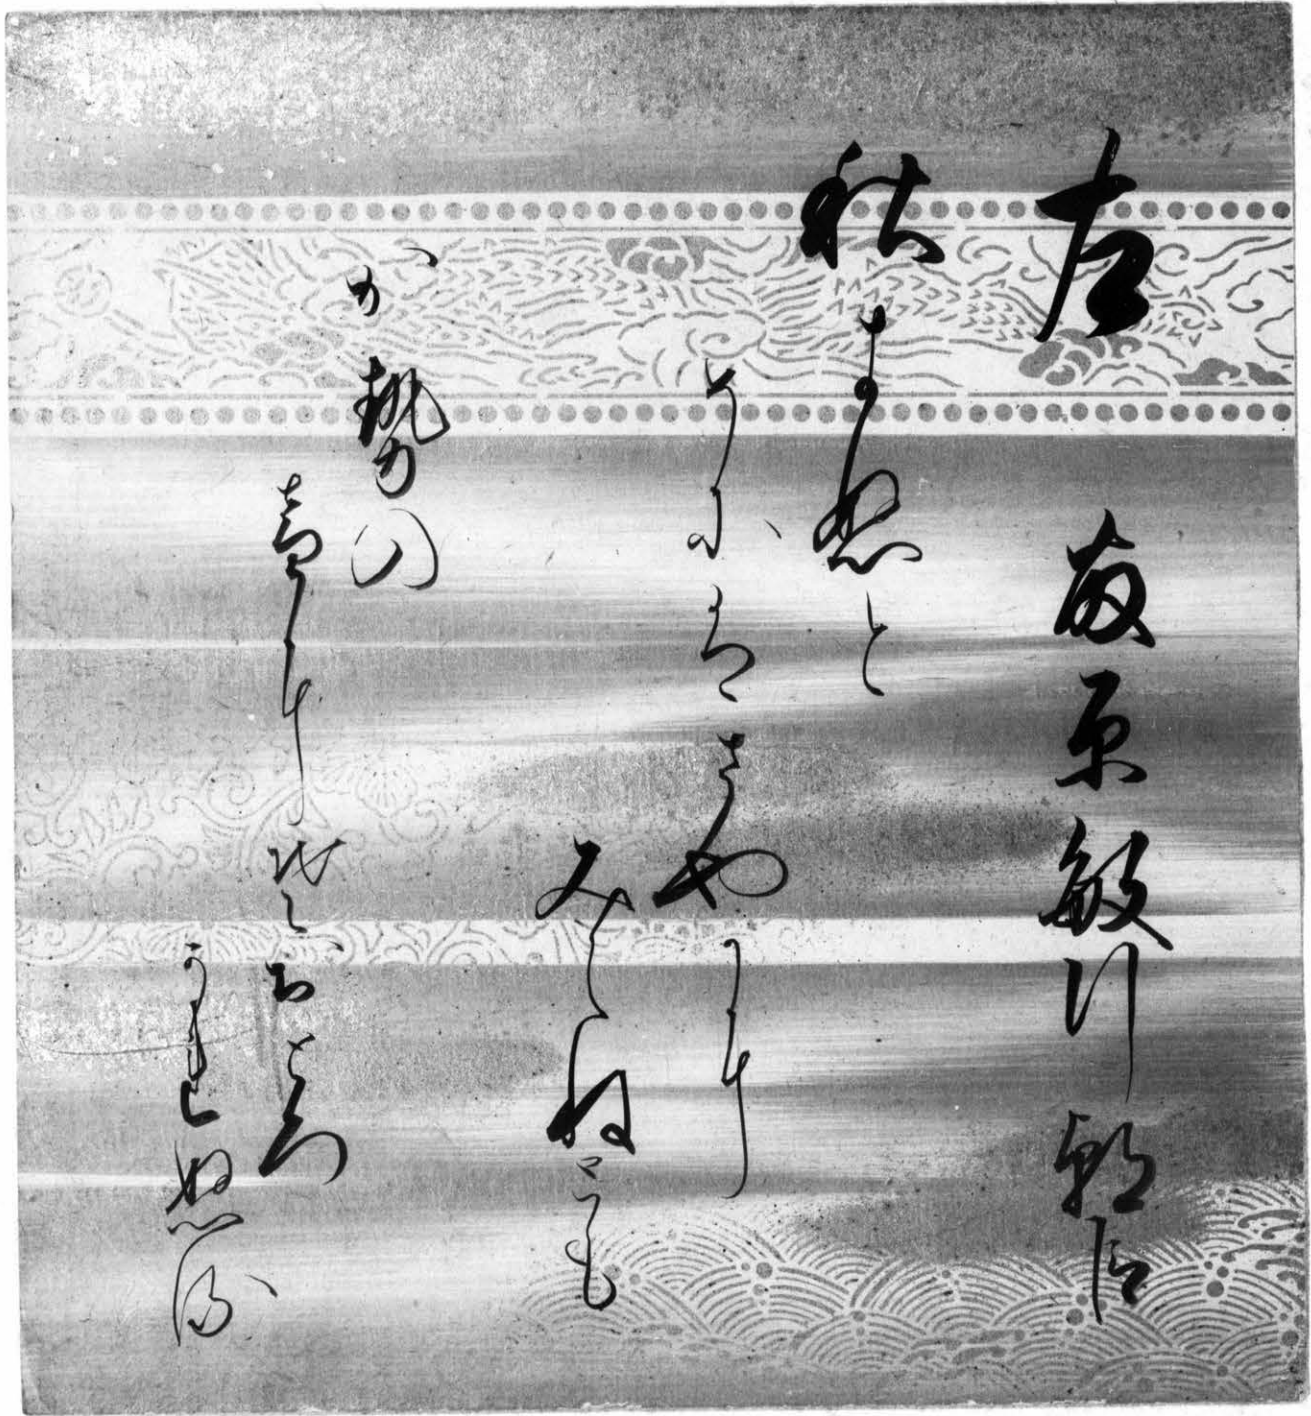 左 藤原敏行朝臣
秋きぬと
めにはさやかに
みえねとも
かせの
おとにそおとろ
かれぬる